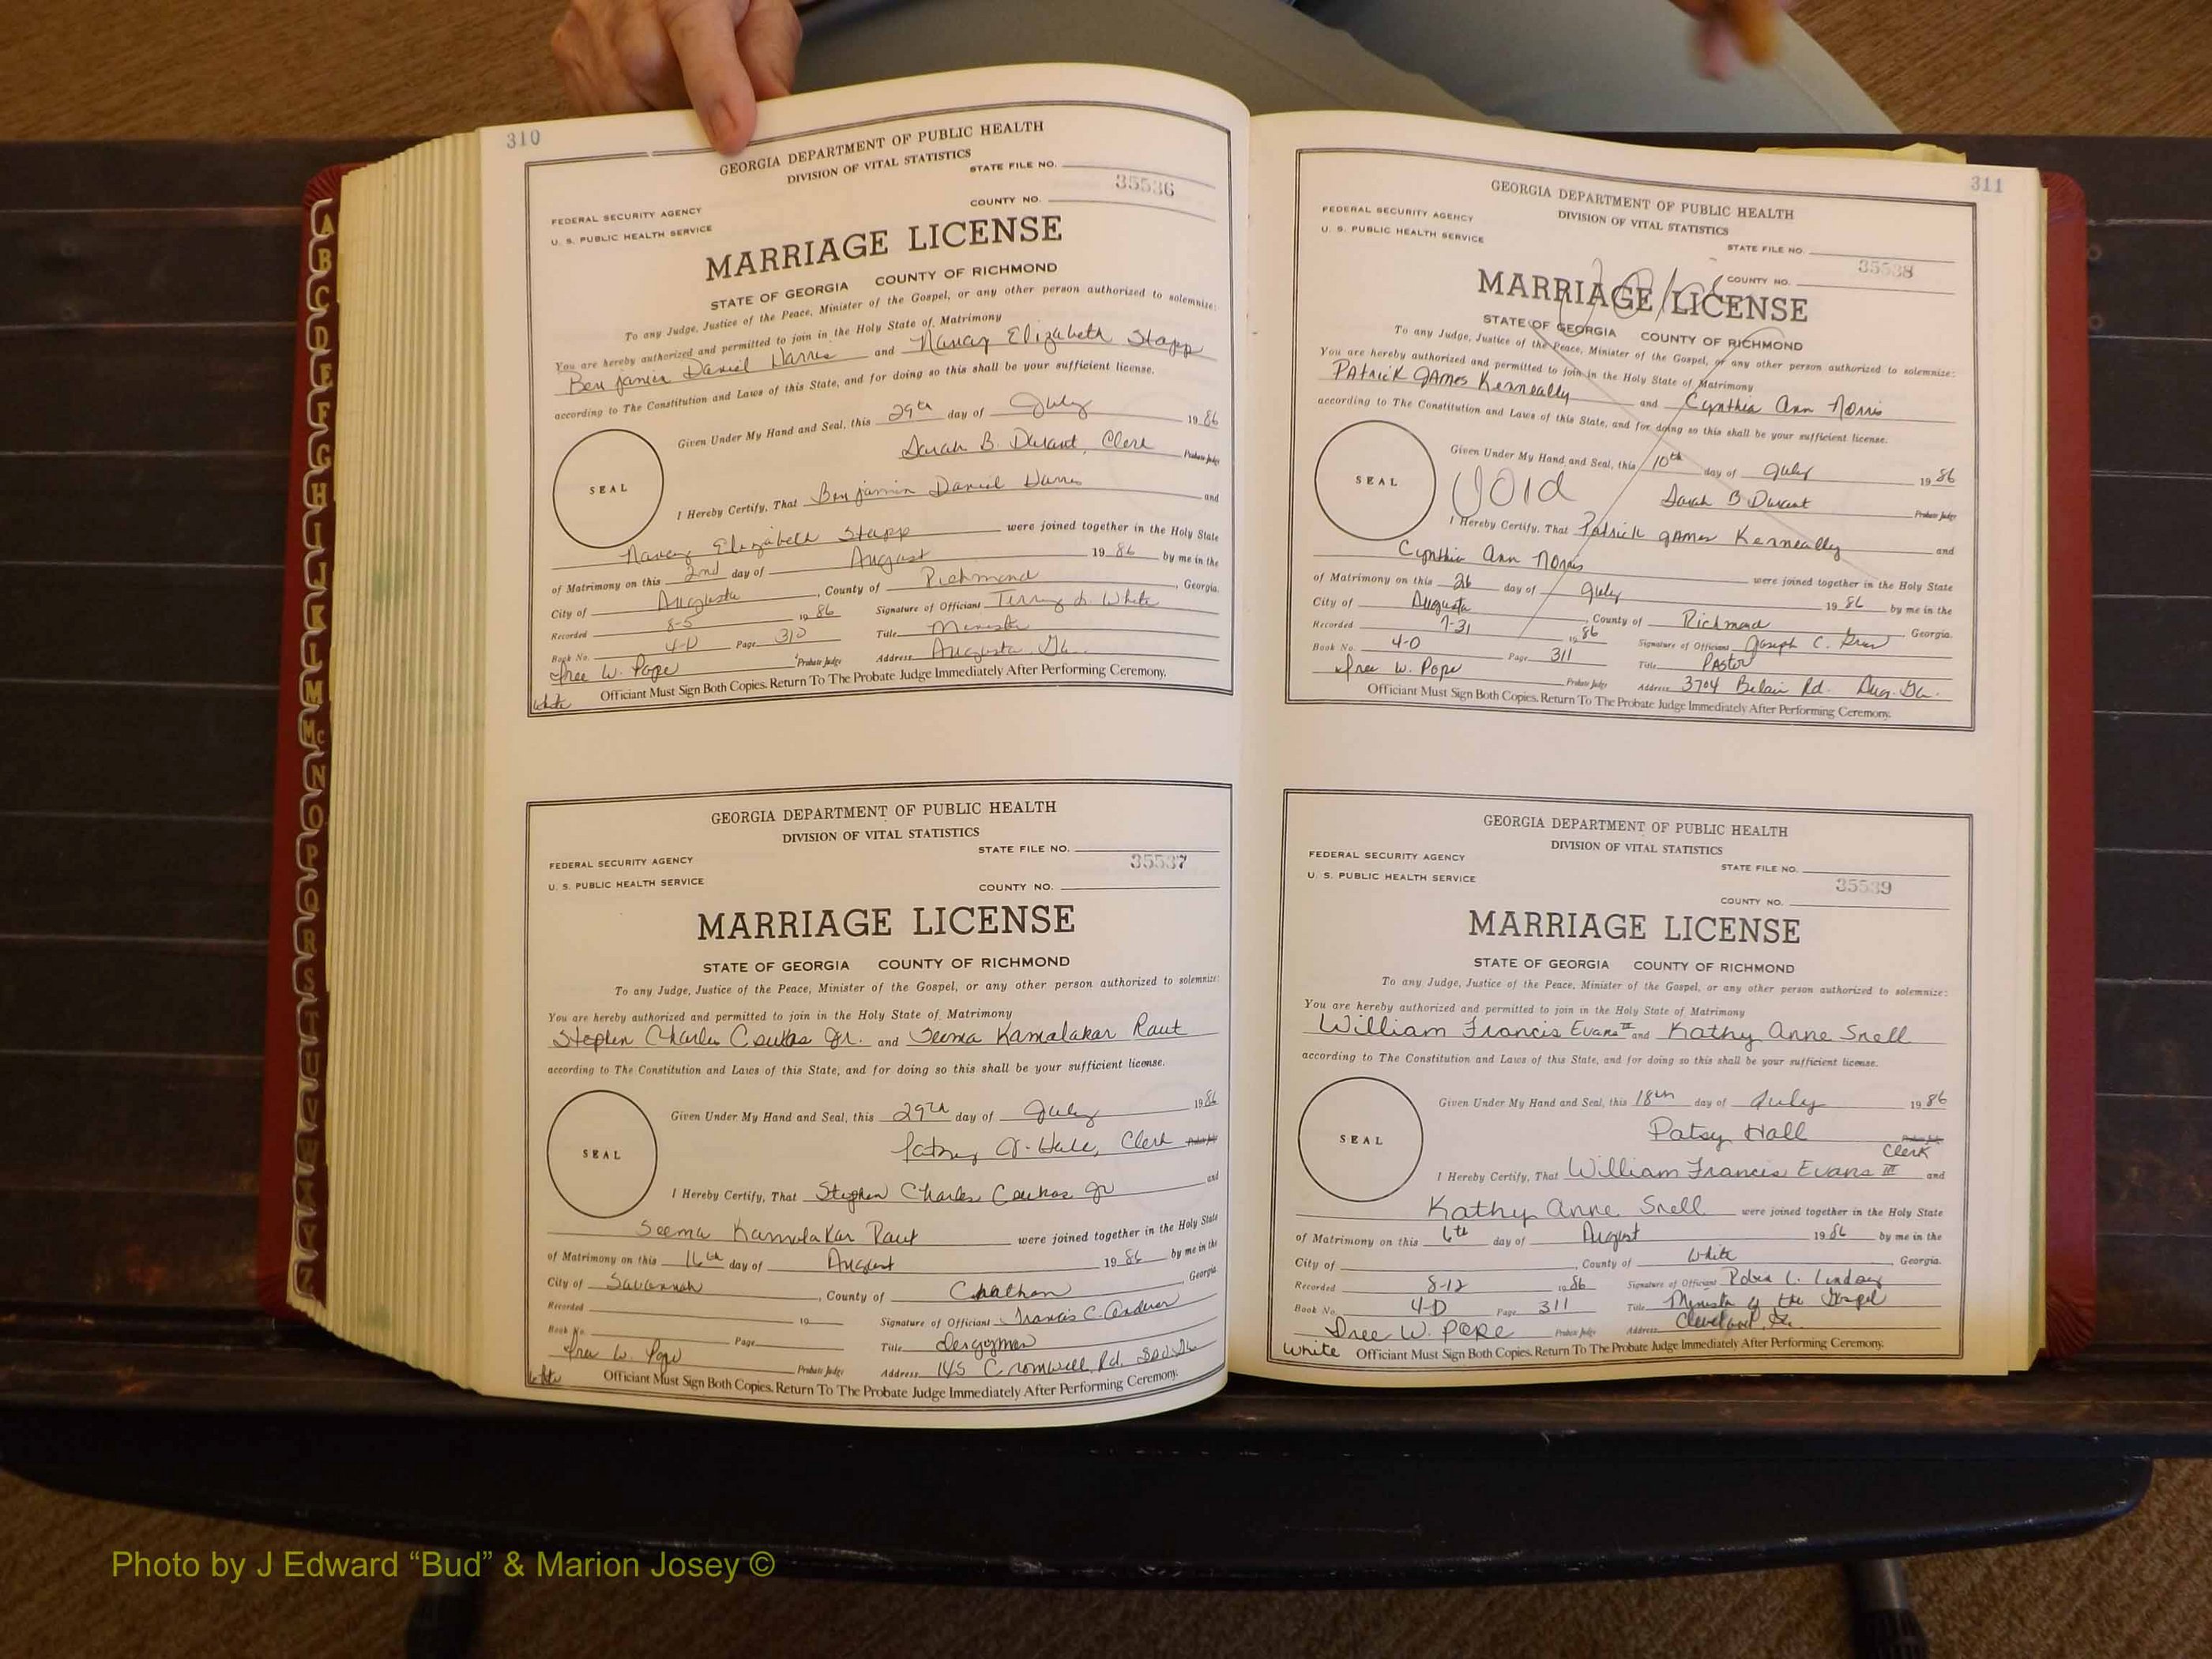 310
GEORGIA DEPARTMENT OF PUBLIC HEALTH
DIVISION OF VITAL STATISTICS
STATE FILE NO.
35536
FEDERAL SECURITY AGENCY
U. S. PUBLIC HEALTH SERVICE
COUNTY NO.
MARRIAGE LICENSE
STATE OF GEORGIA COUNTY OF RICHMOND
To any Judge, Justice of the Peace, Minister of the Gospel, or any other person authorized to solemnize:
You are hereby authorized and permitted to join in the Holy State of Matrimony
Benjamin Daniel Harris and Nancy Elizabeth Stapp
according to The Constitution and Laws of this State, and for doing so this shall be your sufficient license.
Given Under My Hand and Seal, this 29th day of July 1986
Sarah B. Durant, Clerk Probate Judge
SEAL
I Hereby Certify, That Benjamin Daniel Harris and
Nancy Elizabeth Stapp were joined together in the Holy State
of Matrimony on this 2nd day of August 1986 by me in the
City of Augusta, County of Richmond, Georgia.
Recorded 8-5 1986 Signature of Officiant Terry L. White
Book No. 4-D Page 310 Title Minister
Free W. Pope Probate Judge Address Augusta Ga.
White Officiant Must Sign Both Copies. Return To The Probate Judge Immediately After Performing Ceremony.
GEORGIA DEPARTMENT OF PUBLIC HEALTH
DIVISION OF VITAL STATISTICS
STATE FILE NO.
35537
FEDERAL SECURITY AGENCY
U. S. PUBLIC HEALTH SERVICE
COUNTY NO.
MARRIAGE LICENSE
STATE OF GEORGIA COUNTY OF RICHMOND
To any Judge, Justice of the Peace, Minister of the Gospel, or any other person authorized to solemnize:
You are hereby authorized and permitted to join in the Holy State of Matrimony
Stephen Charles Coukos Jr. and Seema Kamalakar Raut
according to The Constitution and Laws of this State, and for doing so this shall be your sufficient license.
Given Under My Hand and Seal, this 29th day of July 1986
Patsy Hall, Clerk Probate Judge
SEAL
I Hereby Certify, That Stephen Charles Coukos Jr and
Seema Kamalakar Raut were joined together in the Holy State
of Matrimony on this 16th day of August 1986 by me in the
City of Savannah, County of Chatham, Georgia
Recorded 19 Signature of Officiant Francis C.
Book No. Page Title clergyman
Free W. Pope Probate Judge Address 145 Cromwell Rd.
White Officiant Must Sign Both Copies. Return To The Probate Judge Immediately After Performing Ceremony.
311
GEORGIA DEPARTMENT OF PUBLIC HEALTH
DIVISION OF VITAL STATISTICS
STATE FILE NO.
35538
FEDERAL SECURITY AGENCY
U. S. PUBLIC HEALTH SERVICE
COUNTY NO.
Void
MARRIAGE LICENSE
STATE OF GEORGIA COUNTY OF RICHMOND
To any Judge, Justice of the Peace, Minister of the Gospel, or any other person authorized to solemnize:
You are hereby authorized and permitted to join in the Holy State of Matrimony
Patrick James Kenneally and Cynthia Ann Norris
according to The Constitution and Laws of this State, and for doing so this shall be your sufficient license.
Given Under My Hand and Seal, this 10th day of July 1986
Void Sarah B Durant Probate Judge
SEAL
I Hereby Certify, That Patrick James Kenneally and
Cynthia Ann Norris were joined together in the Holy State
of Matrimony on this 26 day of July 1986 by me in the
City of Augusta, County of Richmond Georgia.
Recorded 7-31 1986 Signature of Officiant Joseph C.
Book No. 4-D Page 311 Title Pastor
Free W. Pope Probate Judge Address 3704 Belair Rd. Aug. Ga.
Officiant Must Sign Both Copies. Return To The Probate Judge Immediately After Performing Ceremony.
GEORGIA DEPARTMENT OF PUBLIC HEALTH
DIVISION OF VITAL STATISTICS
STATE FILE NO.
35539
FEDERAL SECURITY AGENCY
U. S. PUBLIC HEALTH SERVICE
COUNTY NO.
MARRIAGE LICENSE
STATE OF GEORGIA COUNTY OF RICHMOND
To any Judge, Justice of the Peace, Minister of the Gospel, or any other person authorized to solemnize:
You are hereby authorized and permitted to join in the Holy State of Matrimony
William Francis Evans III and Kathy Anne Snell
according to The Constitution and Laws of this State, and for doing so this shall be your sufficient license.
Given Under My Hand and Seal, this 18th day of July 1986
Patsy Hall Probate Judge
Clerk
SEAL
I Hereby Certify, That William Francis Evans III and
Kathy Anne Snell were joined together in the Holy State
of Matrimony on this 6th day of August 1986 by me in the
City of , County of White, Georgia.
Recorded 8-12 1986 Signature of Officiant L. Lindsay
Book No. 4-D Page 311 Title Minister of the Gospel
Free W. Pope Probate Judge Address Cleveland, Ga.
White Officiant Must Sign Both Copies. Return To The Probate Judge Immediately After Performing Ceremony.
A
B
C
D
E
F
G
H
I
J
K
L
M
Mc
N
O
P
Q
R
S
T
U
V
W
X
Y
Z
Photo by J Edward “Bud” & Marion Josey ©